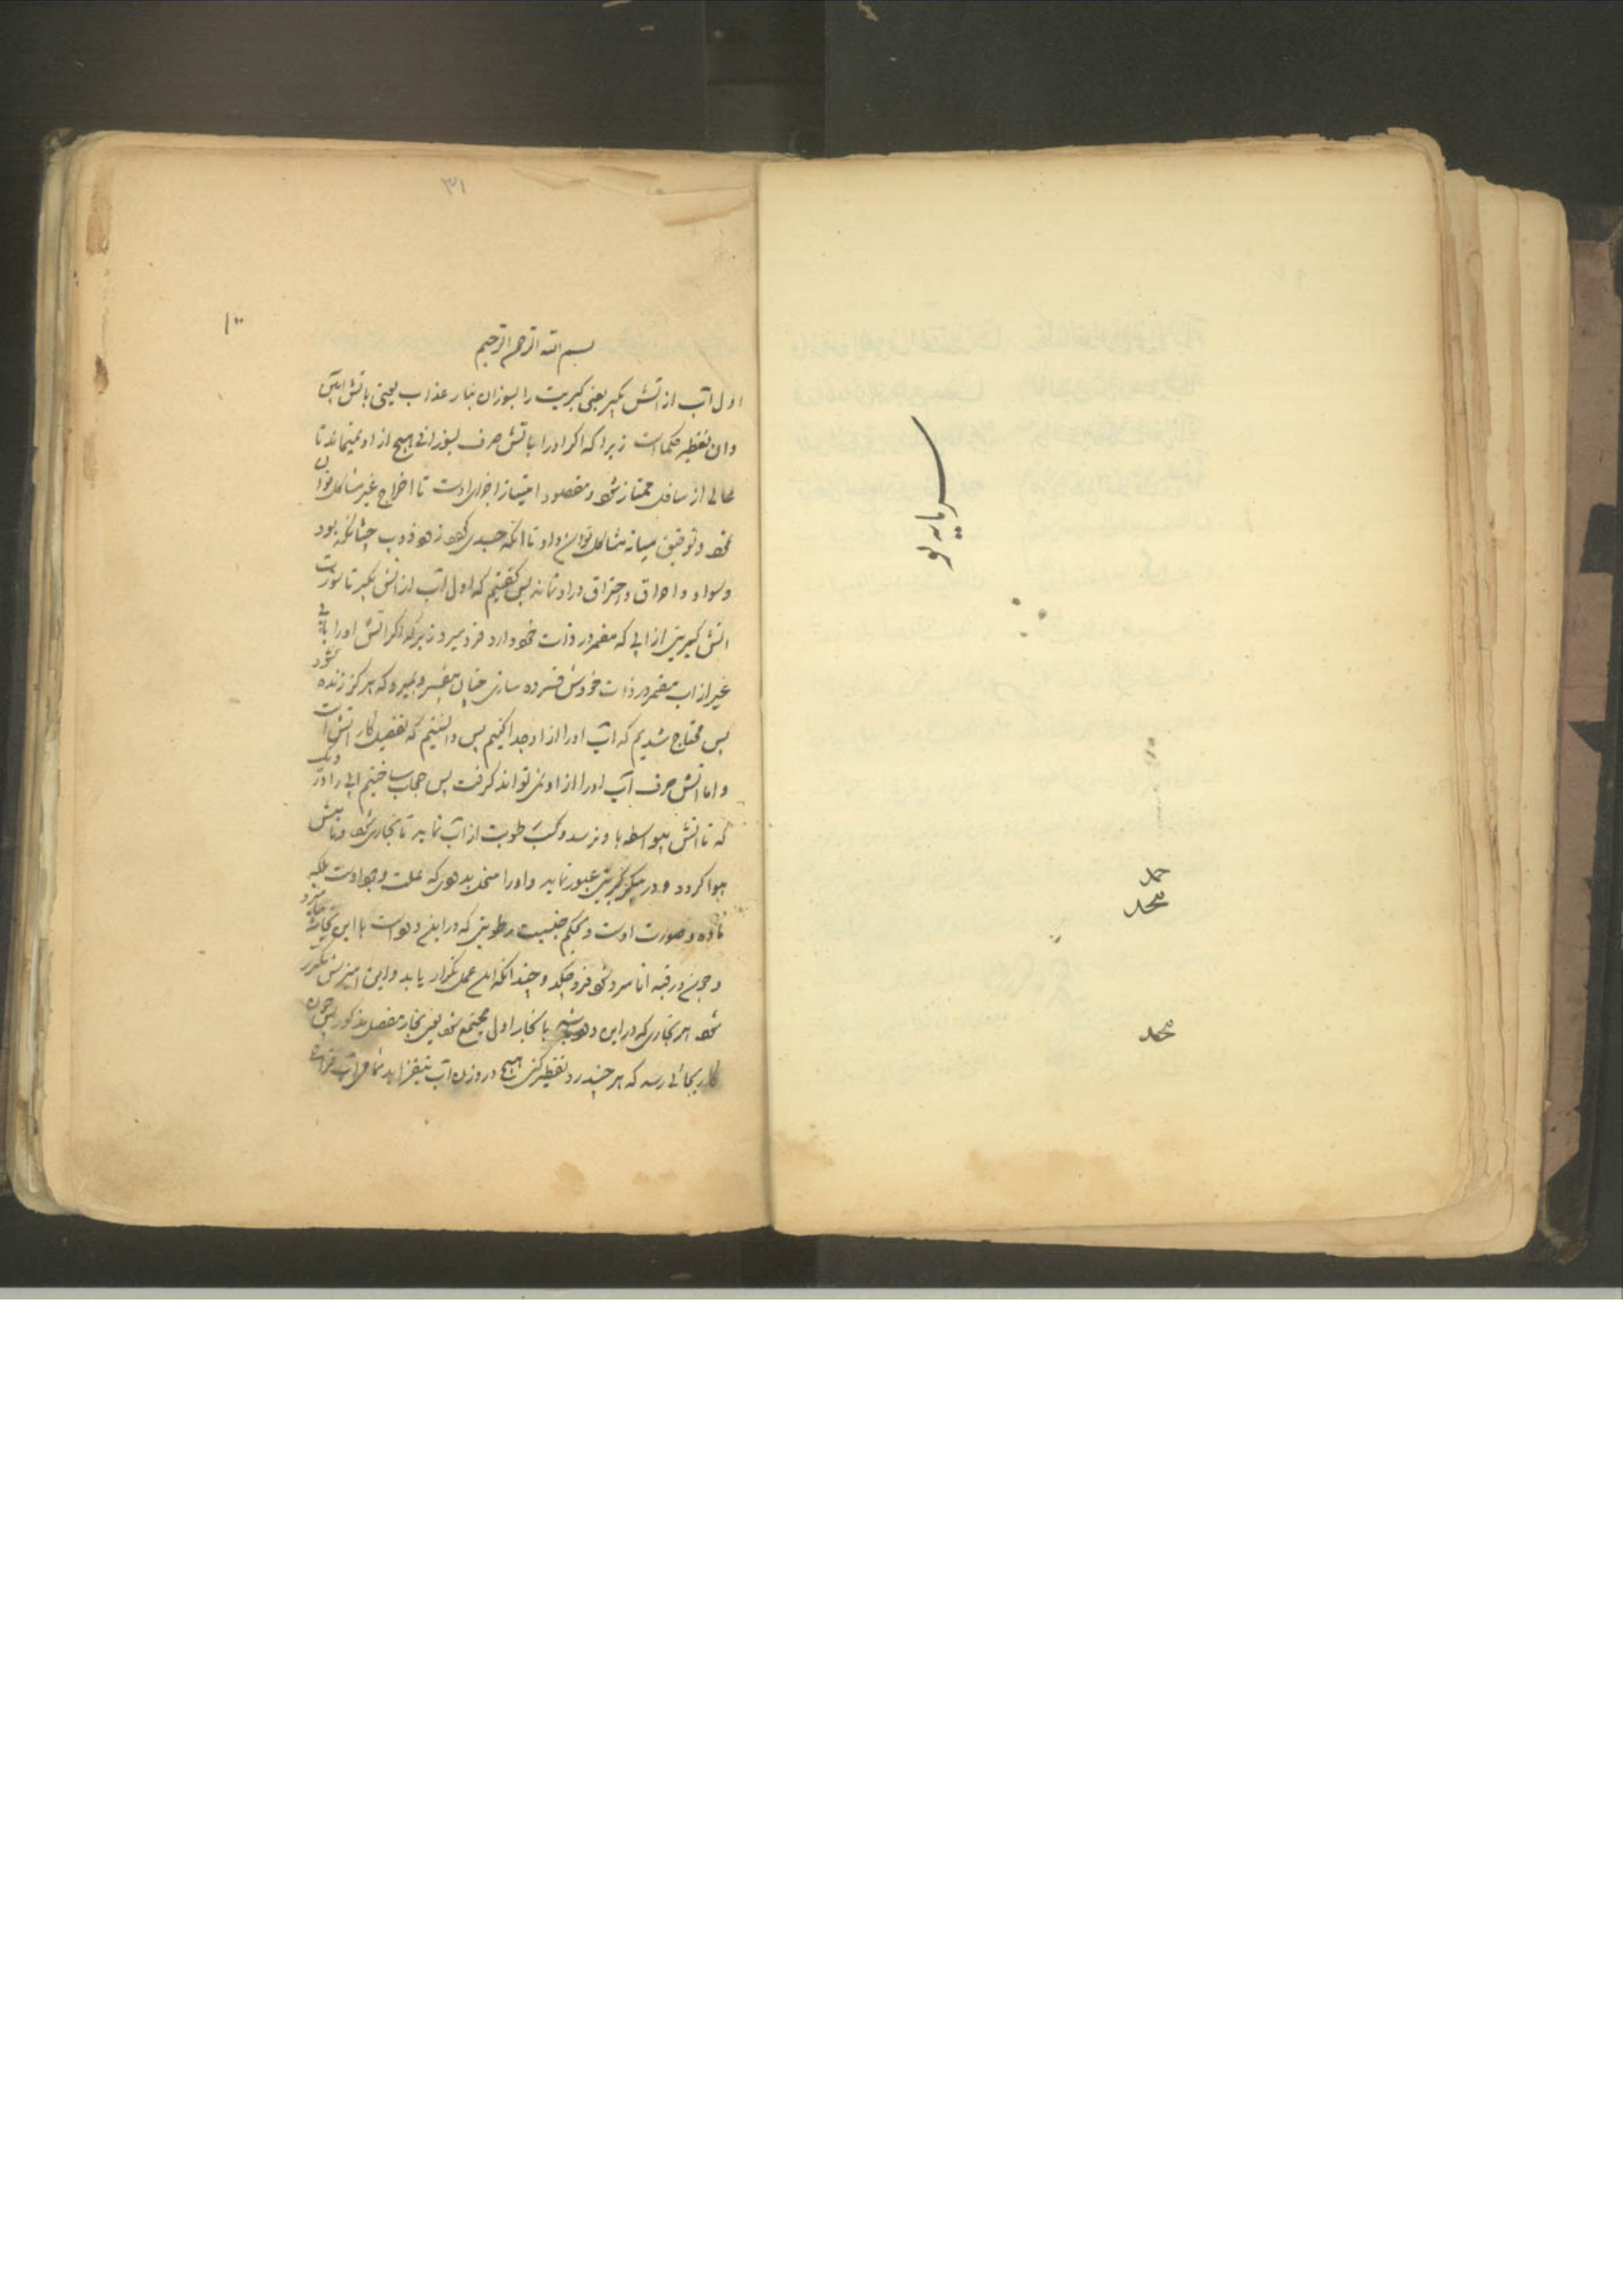 سرمایه نو
حمد
محمد
محمد
۳۱
۱۰۰
بسم الله الرحمن الرحیم
اول آب از آتش بگیر یعنی کبریت را بسوزان بنار عذاب یعنی باتش آبین
وان تقطیر حکماست زیرا که اگر اورا باتش صرف بسوزانی هیچ از او نمیماند تا
عالی از سافل ممتاز شود و مقصود امتیاز اجزای اوست تا اخراج غیر مشاکل توان
نمود و توفیق میانه مشاکل توان داد تا آنکه جسدی گردد ذوب چنانکه بود
وسواد و احراق و احتراق در او نماند پس گفتیم که اول آب از آتش بگیر تا سورت
آتش کبریتی از آبی که مضمر در ذات خود دارد فرو میرد زیرا که اگر آتش اورا بآبی
غیر از آب مضمر در ذات خودش فسرده سازی چنان بفسرد و بمیرد که هرگز زنده نشود
پس محتاج شدیم که آب اورا از او جدا کنیم پس دانستیم که تفصیل کار آتش است
واما آتش صرف آب اورا از او نمی تواند گرفت پس حجاب ساختیم آبی را در دیگ
که تا آتش بیواسطه باو نرسد و کسب رطوبت از آب نماید تا بخاری شود و
هوا گردد و در کبریت عبور نماید و اورا منحل بدهن که علت وجود اوست بلکه
ماده و صورت اوست و بحکم جنسیت رطوبتی که در این دهن است با این بخار
و چون در قبه انا سرد شود فرو چکد و چندانکه این عمل تکرار یابد و این آمیزش مکرر
شود هر بخاری که در این دهن با بخار اول مجتمع شود یعنی بخار مفصل مذکور پس چون
کار بجائی رسد که هر چند رد تقطیر کنی هیچ در وزن آب نیفزاید